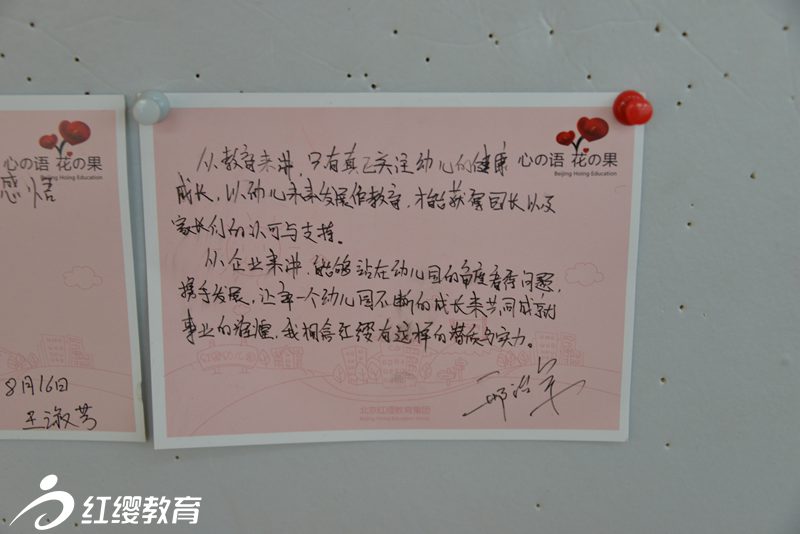 心の语 花の果
Beijing Hoing Education
感悟
8月16日
王淑芳
心の语 花の果
Beijing Hoing Education
从教育来讲,只有真正关注幼儿的健康
成长,以幼儿未来发展作教育,才能获得园长以及
家长们的认可与支持。
从企业来讲,能够站在幼儿园的角度看待问题,
携手发展,让每一个幼儿园不断的成长来共同成就
事业的辉煌,我相信红缨有这样的潜质与实力。
北京红缨教育集团
红缨教育